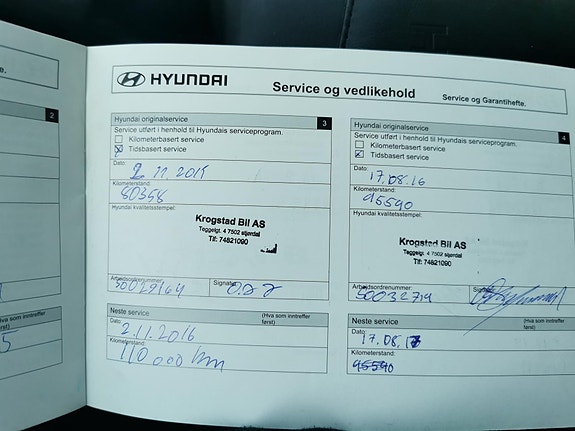 e.
2
va som inntreffer
først)
5
HYUNDAI
Service og vedlikehold
Service og Garantihefte.
Hyundai originalservice
3
Service utført i henhold til Hyundais serviceprogram.
Kilometerbasert service
Tidsbasert service
Dato:
2 11 2015
Kilometerstand:
80358
Hyundai kvalitetsstempel:
Krogstad Bil AS
Teggelgt. 4 7502 stjørdal
Tlf: 74821090
Arbeidsordrenummer:
50029164
Signatur
Neste service
(Hva som inntreffer
først)
Dato:
2.11.2016
Kilometerstand:
110 000 km
Hyundai originalservice
4
Service utført i henhold til Hyundais serviceprogram.
Kilometerbasert service
Tidsbasert service
Dato:
17.08.16
Kilometerstand:
95590
Hyundai kvalitetsstempel:
Krogstad Bil AS
Teggelgt. 4 7502 stjørdal
Tlf: 74821090
Arbeidsordrenummer:
50032714
Neste service
(Hva som inntreffer
først)
Dato:
17.08.17
Kilometerstand:
95590